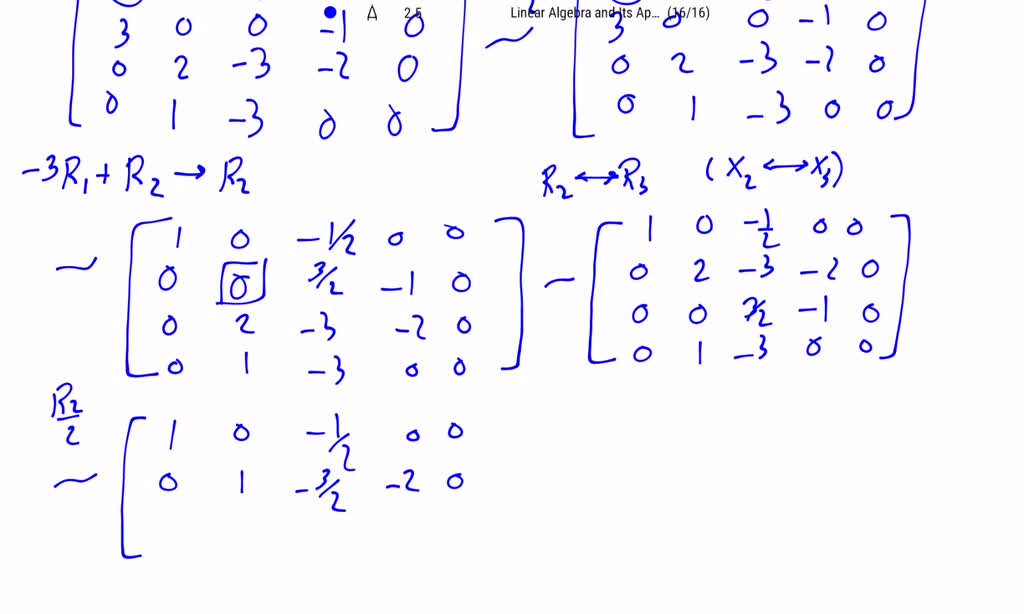 A 2.5 Linear Algebra and Its Ap... (16/16)
3 0 0 -1 0 ~ 3 0 0 -1 0
0 2 -3 -2 0 0 2 -3 -2 0
0 1 -3 0 0 0 1 -3 0 0
-3R₁ + R₂ → R₂ R₂ ↔ R₃ (X₂ ↔ X₃)
1 0 -1/2 0 0 1 0 -1/2 0 0
~ 0 0 3/2 -1 0 ~ 0 2 -3 -2 0
0 2 -3 -2 0 0 0 3/2 -1 0
0 1 -3 0 0 0 1 -3 0 0
R₂/2
1 0 -1/2 0 0
~ 0 1 -3/2 -2 0